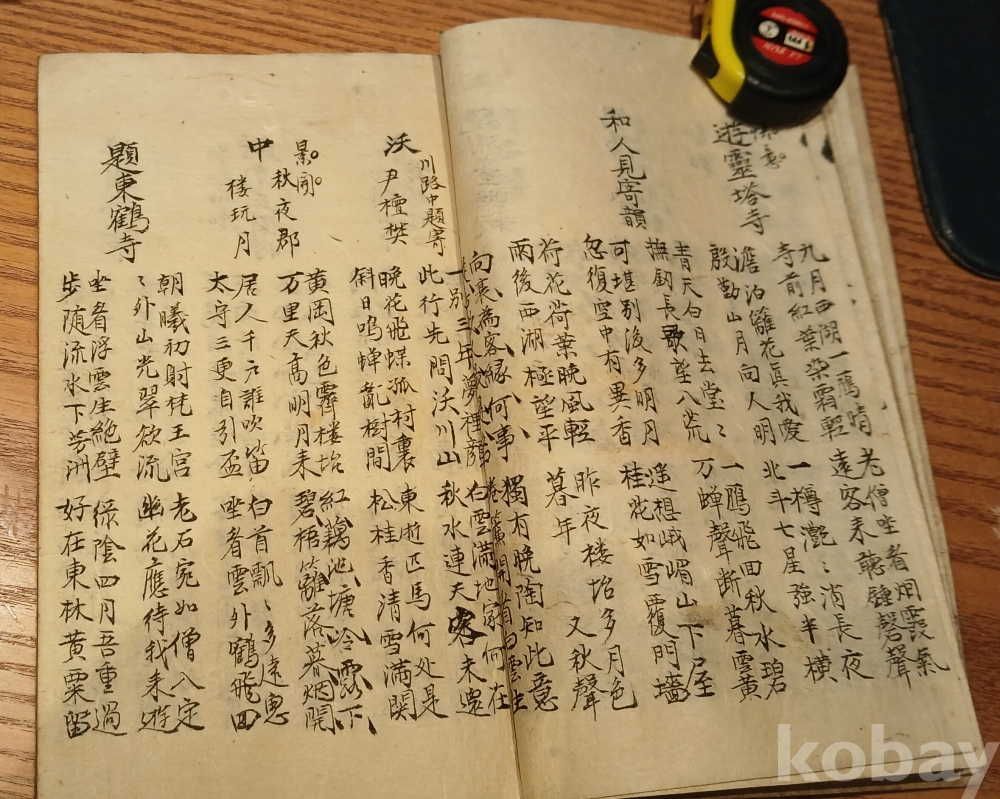 遊靈塔寺
九月西湖一鴈晴 老僧坐看烟霞氣
寺前紅葉染霜輕 遠客來聽鍾磬聲
澹泊籬花眞我愛 一樽灔〻消長夜
殷勤山月向人明 北斗七星強半橫
靑天白日去堂〻 一鴈飛回秋水碧
撫釼長歌望八荒 万蟬聲斷暮雲黃
可堪別後多明月 遥想峨嵋山下屋
忽復空中有異香 桂花如雪覆門墻
和人見寄韻
荷花荷葉晩風輕 昨夜楼坮多月色
雨後西湖極望平 暮年 又秋聲
向裏為客緣何事 獨有晩陶知此意
一別三年夢裡 白雲滿地家何在
此行先問沃川山 秋水連天客未還
川路中題寄
沃 尹檀樊
晩花飛蝶孤村裏 東遊匹馬何处是
斜日鳴蟬亂樹間 松桂香清雪滿関
黃岡秋色霽楼坮 紅藕池塘冷露下
万里天高明月来 碧梧籬落暮烟開
景
中 秋夜郡
楼玩月
居人千戶誰吹笛 白首飄〻多遠思
太守三更自引盃 坐看雲外鶴飛回
題東鶴寺
朝曦初射梵王宮 老石宛如僧入定
〻外山光翠欲流 幽花應待我来遊
坐看浮雲生絶壁 綠陰四月吾重過
步随流水下芳洲 好在東林黃粟留
kobay